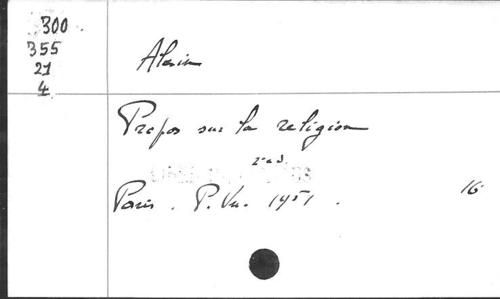 300
355
21
4
Alain
Propos sur la religion
2e éd.
Paris. P. Un. 1951.
16